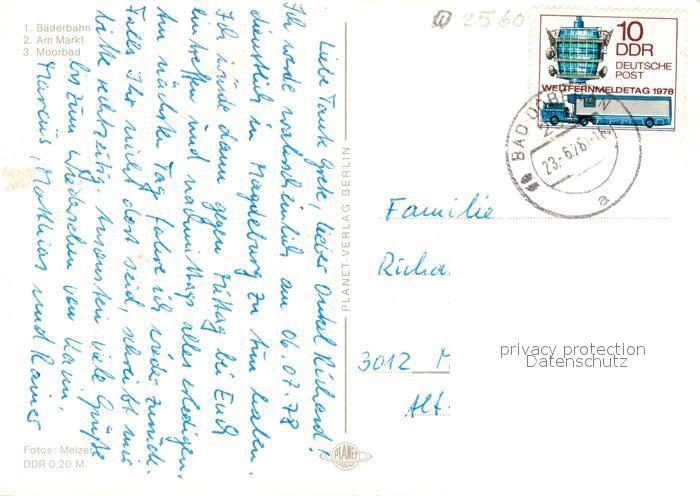 1. Bäderbahn
2. Am Markt
3. Moorbad
2560
10
DDR
DEUTSCHE
POST
WELTFERNMELDETAG 1978
BAD DOBERAN
2
23.-6.78
a
Liebe Tante Grete, lieber Onkel Richard!
Ich werde wahrscheinlich am 06.07.78
dienstlich in Magdeburg zu tun haben.
Ich würde dann gegen Mittag bei Euch
eintreffen und nachmittags alles erledigen.
Am nächsten Tag fahre ich wieder zurück.
Falls Ihr nicht dort seid, schreibt mir
bitte rechtzeitig. Ansonsten viele Grüße
bis zum Wiedersehen von Karin,
Marcus, Matthias und Rainer
PLANET-VERLAG BERLIN
Familie
Richa
3012 M
Alt-
privacy protection
Datenschutz
Fotos: Melzer
DDR 0,20 M
PLANET
VERLAG